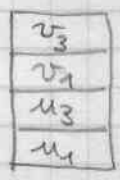 v₃
v₁
u₃
u₁